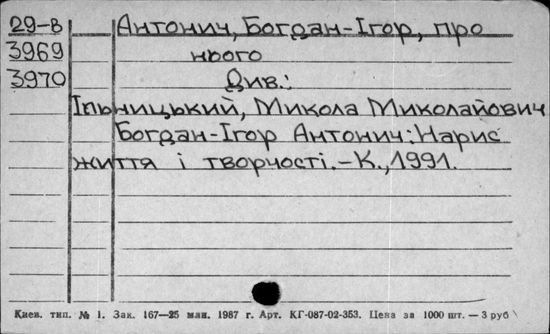 29-В Антонич, Богдан-Ігор, про
3969 нього
3970 Див.:
Ільницький, Микола Миколайович
Богдан-Ігор Антонич: Нарис
життя і творчості.-К., 1991.
Киев. тип. № 1. Зак. 167—25 млн. 1987 г. Арт. КГ-087-02-353. Цена за 1000 шт. — 3 руб